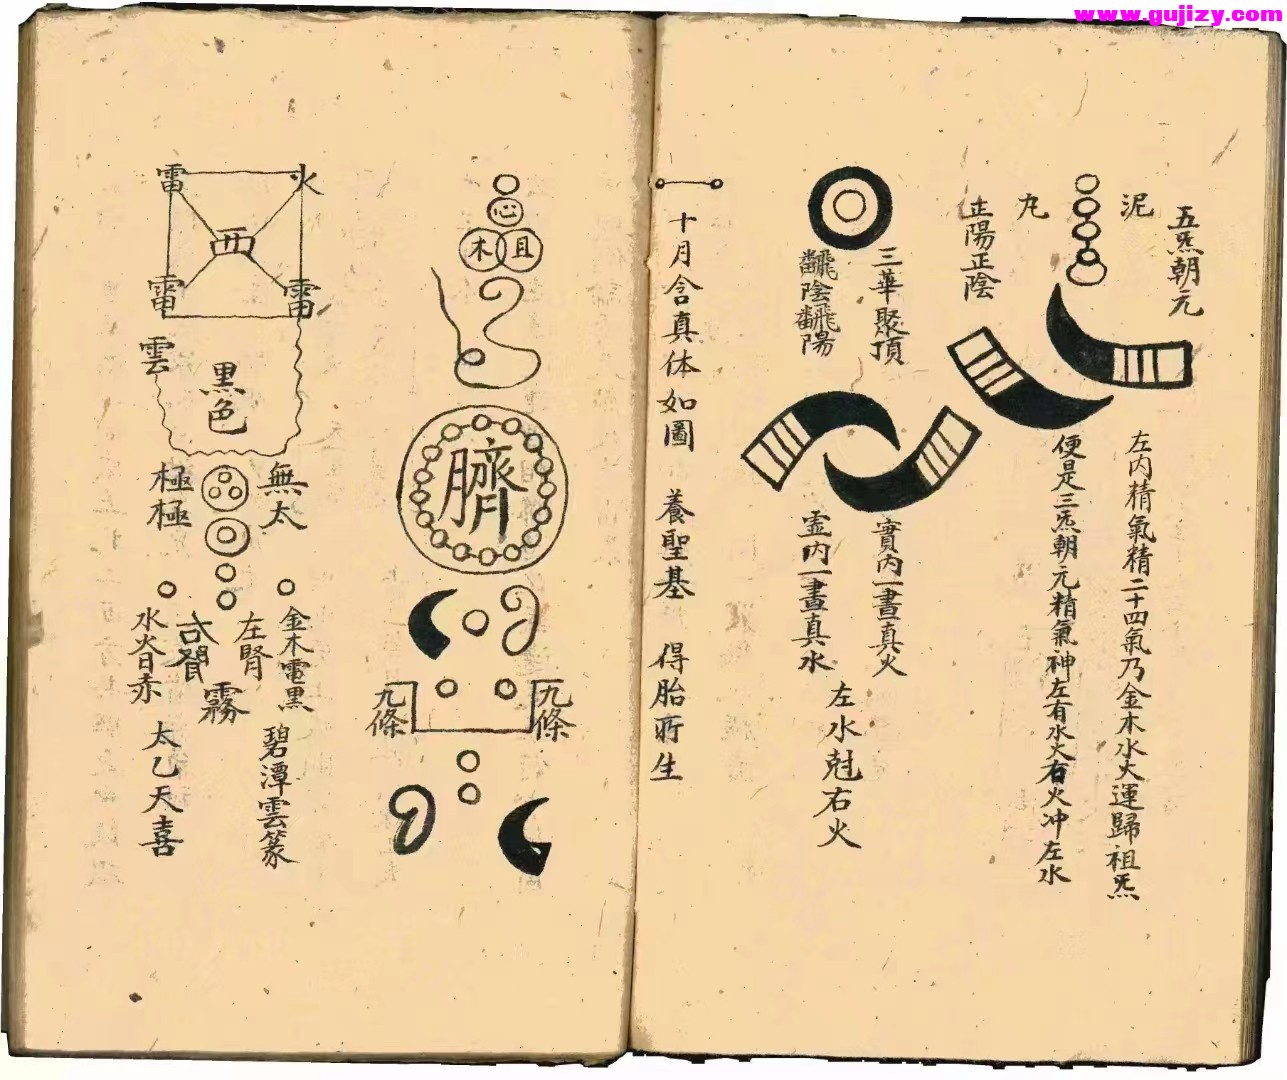 www.gujizy.com
五炁朝元
泥
丸
正陽正陰
左内精氣精二十四氣乃金木水火運歸祖炁
便是三炁朝元精氣神左有水火右火冲左水
三華聚頂
飜陰飜陽
實内一畫真火
虚内一畫真水
左水尅右火
十月含真体如圖 養聖基 得胎所生
心
木
且
臍
九條
九條
火
雷
西
雷
雷
雲
黑色
無太
極極
金木電黑
左腎
右腎
水火日赤
霧
碧潭雲篆
太乙天喜